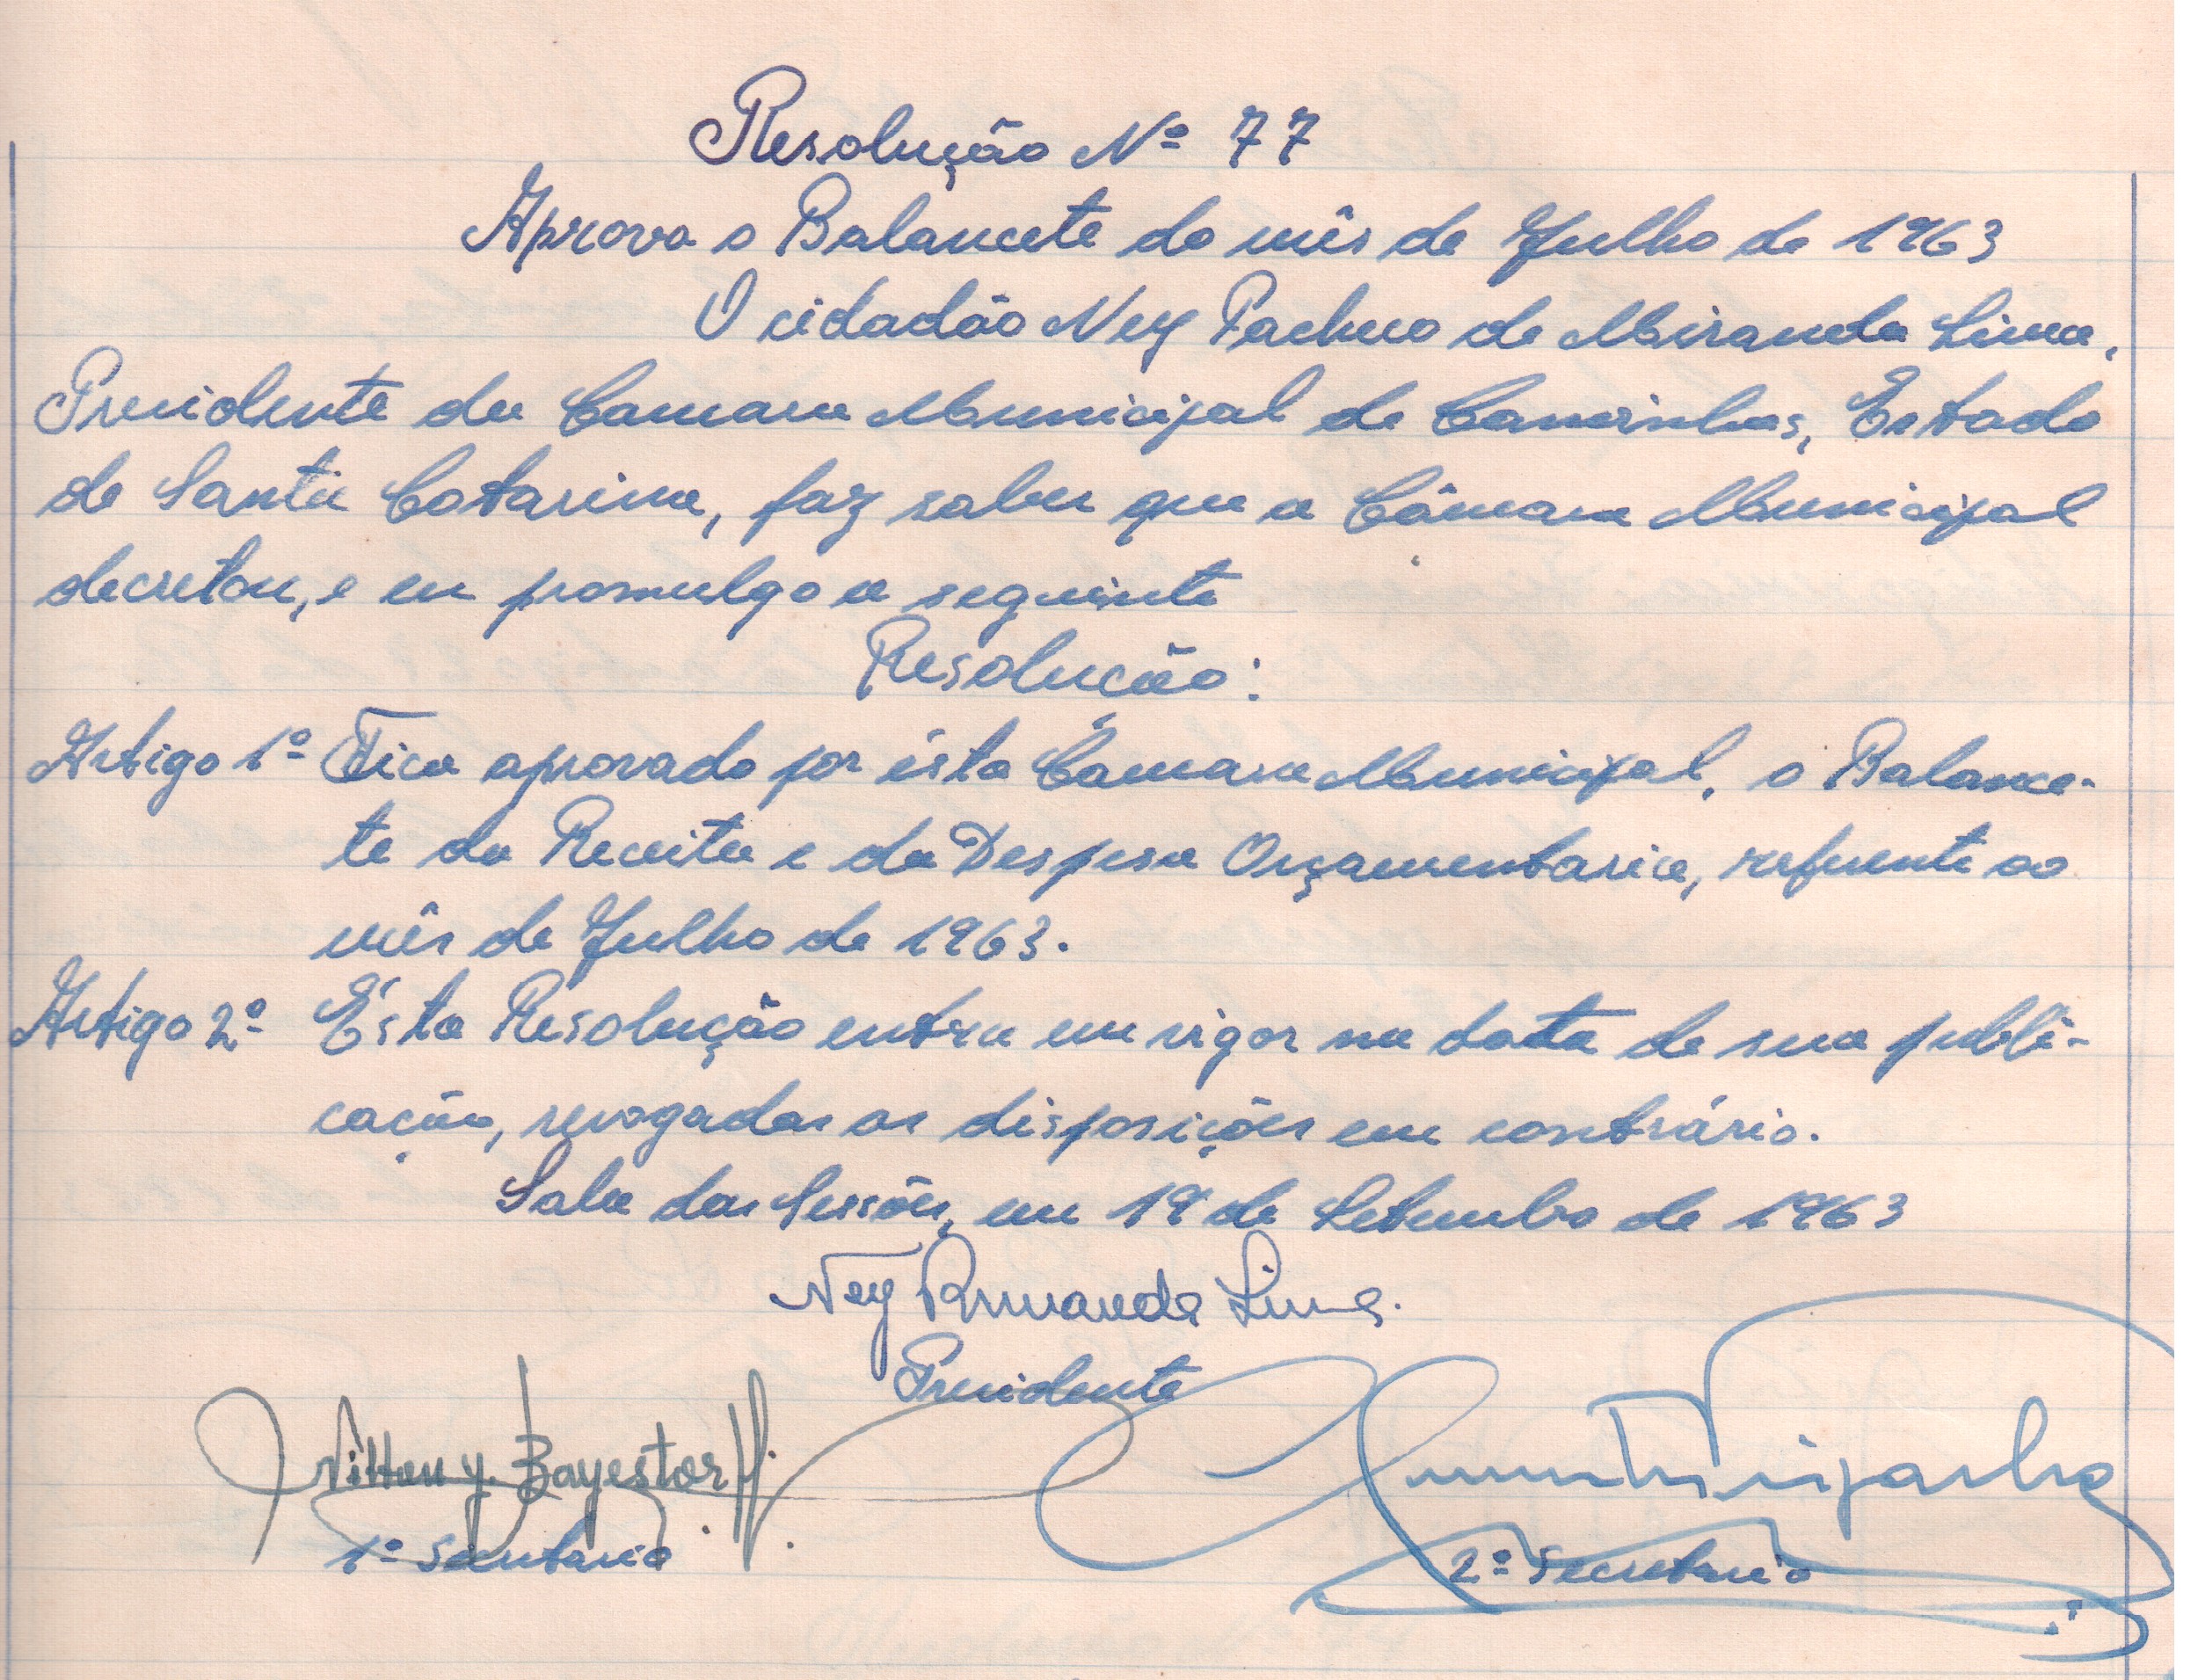 Resolução Nº 77
Aprova o Balancete do mês de Julho de 1963
O cidadão Ney Pacheco de Miranda Lima,
Presidente da Camara Municipal de Canoinhas, Estado
de Santa Catarina, faz saber que a Câmara Municipal
decretou, e eu promulgo a seguinte
Resolução:
Artigo 1º Fica aprovado por ésta Câmara Municipal, o Balance-
te da Receita e da Despesa Orçamentaria, referente ao
mês de Julho de 1963.
Artigo 2º Ésta Resolução entra em vigor na data de sua publi-
cação, revogadas as disposições em contrário.
Sala das Sessões, em 19 de Setembro de 1963
Ney Pmiranda Lima.
Presidente
Bayestorff.
1º Secretario
2º Secretario